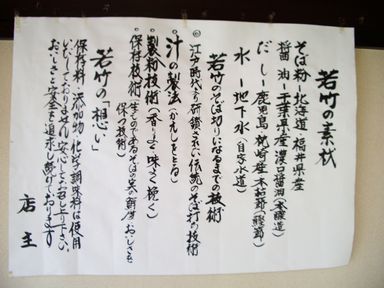 若竹の素材
そば粉ー北海道・福井県産
醤油ー千葉県産濃口醤油(本醸造)
だしー鹿児島枕崎産本枯節(鰹節)
水ー地下水(自家水道)
若竹のそば切りになるまでの技術
◎江戸時代より研鑽されない伝統のそば打の技術
・汁の製法(かえしをとる)
・製粉技術(香りよく味よく挽く)
・保存技術(生ものであるそばの実の鮮度おいしさを
保つ技術)
若竹の「想い」
保存料・添加物・化学調味料は使用
いたしておりません。安心してお召し上り下さい。
おいしさと安全を追求し続けております。
店主